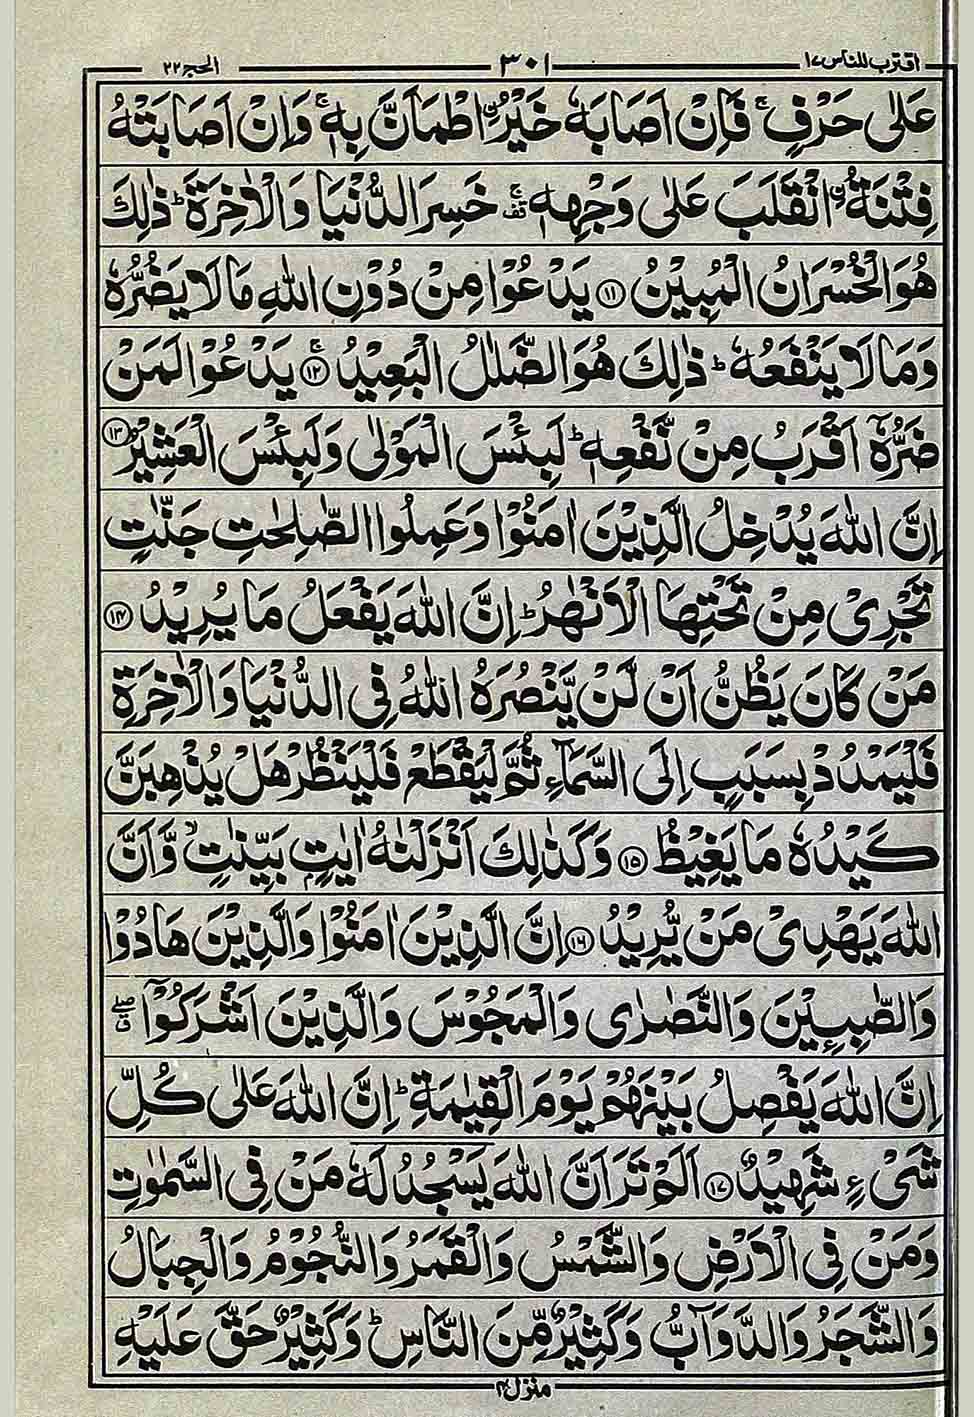 اقترب للناس ١٧ ٣٠١ الحج ٢٢
عَلٰى حَرْفٍ ۚ فَاِنْ اَصَابَهٗ خَيْرُ ۨاطْمَاَنَّ بِهٖ ۚ وَاِنْ اَصَابَتْهُ
فِتْنَةُ ۨانْقَلَبَ عَلٰى وَجْهِهٖ ۚ قف خَسِرَ الدُّنْيَا وَالْاٰخِرَةَ ؕ ذٰلِكَ
هُوَ الْخُسْرَانُ الْمُبِيْنُ ⑪ يَدْعُوْا مِنْ دُوْنِ اللّٰهِ مَا لَا يَضُرُّهٗ
وَمَا لَا يَنْفَعُهٗ ؕ ذٰلِكَ هُوَ الضَّلٰلُ الْبَعِيْدُ ۚ ⑫ يَدْعُوْا لَمَنْ
ضَرُّهٗۤ اَقْرَبُ مِنْ نَّفْعِهٖ ؕ لَبِئْسَ الْمَوْلٰى وَلَبِئْسَ الْعَشِيْرُ ⑬
اِنَّ اللّٰهَ يُدْخِلُ الَّذِيْنَ اٰمَنُوْا وَعَمِلُوا الصّٰلِحٰتِ جَنّٰتٍ
تَجْرِيْ مِنْ تَحْتِهَا الْاَنْهٰرُ ؕ اِنَّ اللّٰهَ يَفْعَلُ مَا يُرِيْدُ ⑭
مَنْ كَانَ يَظُنُّ اَنْ لَّنْ يَّنْصُرَهُ اللّٰهُ فِي الدُّنْيَا وَالْاٰخِرَةِ
فَلْيَمْدُدْ بِسَبَبٍ اِلَى السَّمَآءِ ثُمَّ لْيَقْطَعْ فَلْيَنْظُرْ هَلْ يُذْهِبَنَّ
كَيْدُهٗ مَا يَغِيْظُ ⑮ وَكَذٰلِكَ اَنْزَلْنٰهُ اٰيٰتٍۭ بَيِّنٰتٍ ۙ وَّاَنَّ
اللّٰهَ يَهْدِيْ مَنْ يُّرِيْدُ ⑯ اِنَّ الَّذِيْنَ اٰمَنُوْا وَالَّذِيْنَ هَادُوْا
وَالصّٰبِـِٕيْنَ وَالنَّصٰرٰى وَالْمَجُوْسَ وَالَّذِيْنَ اَشْرَكُوْۤا ۖ ق
اِنَّ اللّٰهَ يَفْصِلُ بَيْنَهُمْ يَوْمَ الْقِيٰمَةِ ؕ اِنَّ اللّٰهَ عَلٰى كُلِّ
شَيْءٍ شَهِيْدٌ ⑰ اَلَمْ تَرَ اَنَّ اللّٰهَ يَسْجُدُ لَهٗ مَنْ فِي السَّمٰوٰتِ
وَمَنْ فِي الْاَرْضِ وَالشَّمْسُ وَالْقَمَرُ وَالنُّجُوْمُ وَالْجِبَالُ
وَالشَّجَرُ وَالدَّوَآبُّ وَكَثِيْرٌ مِّنَ النَّاسِ ؕ وَكَثِيْرٌ حَقَّ عَلَيْهِ
منزل ٤